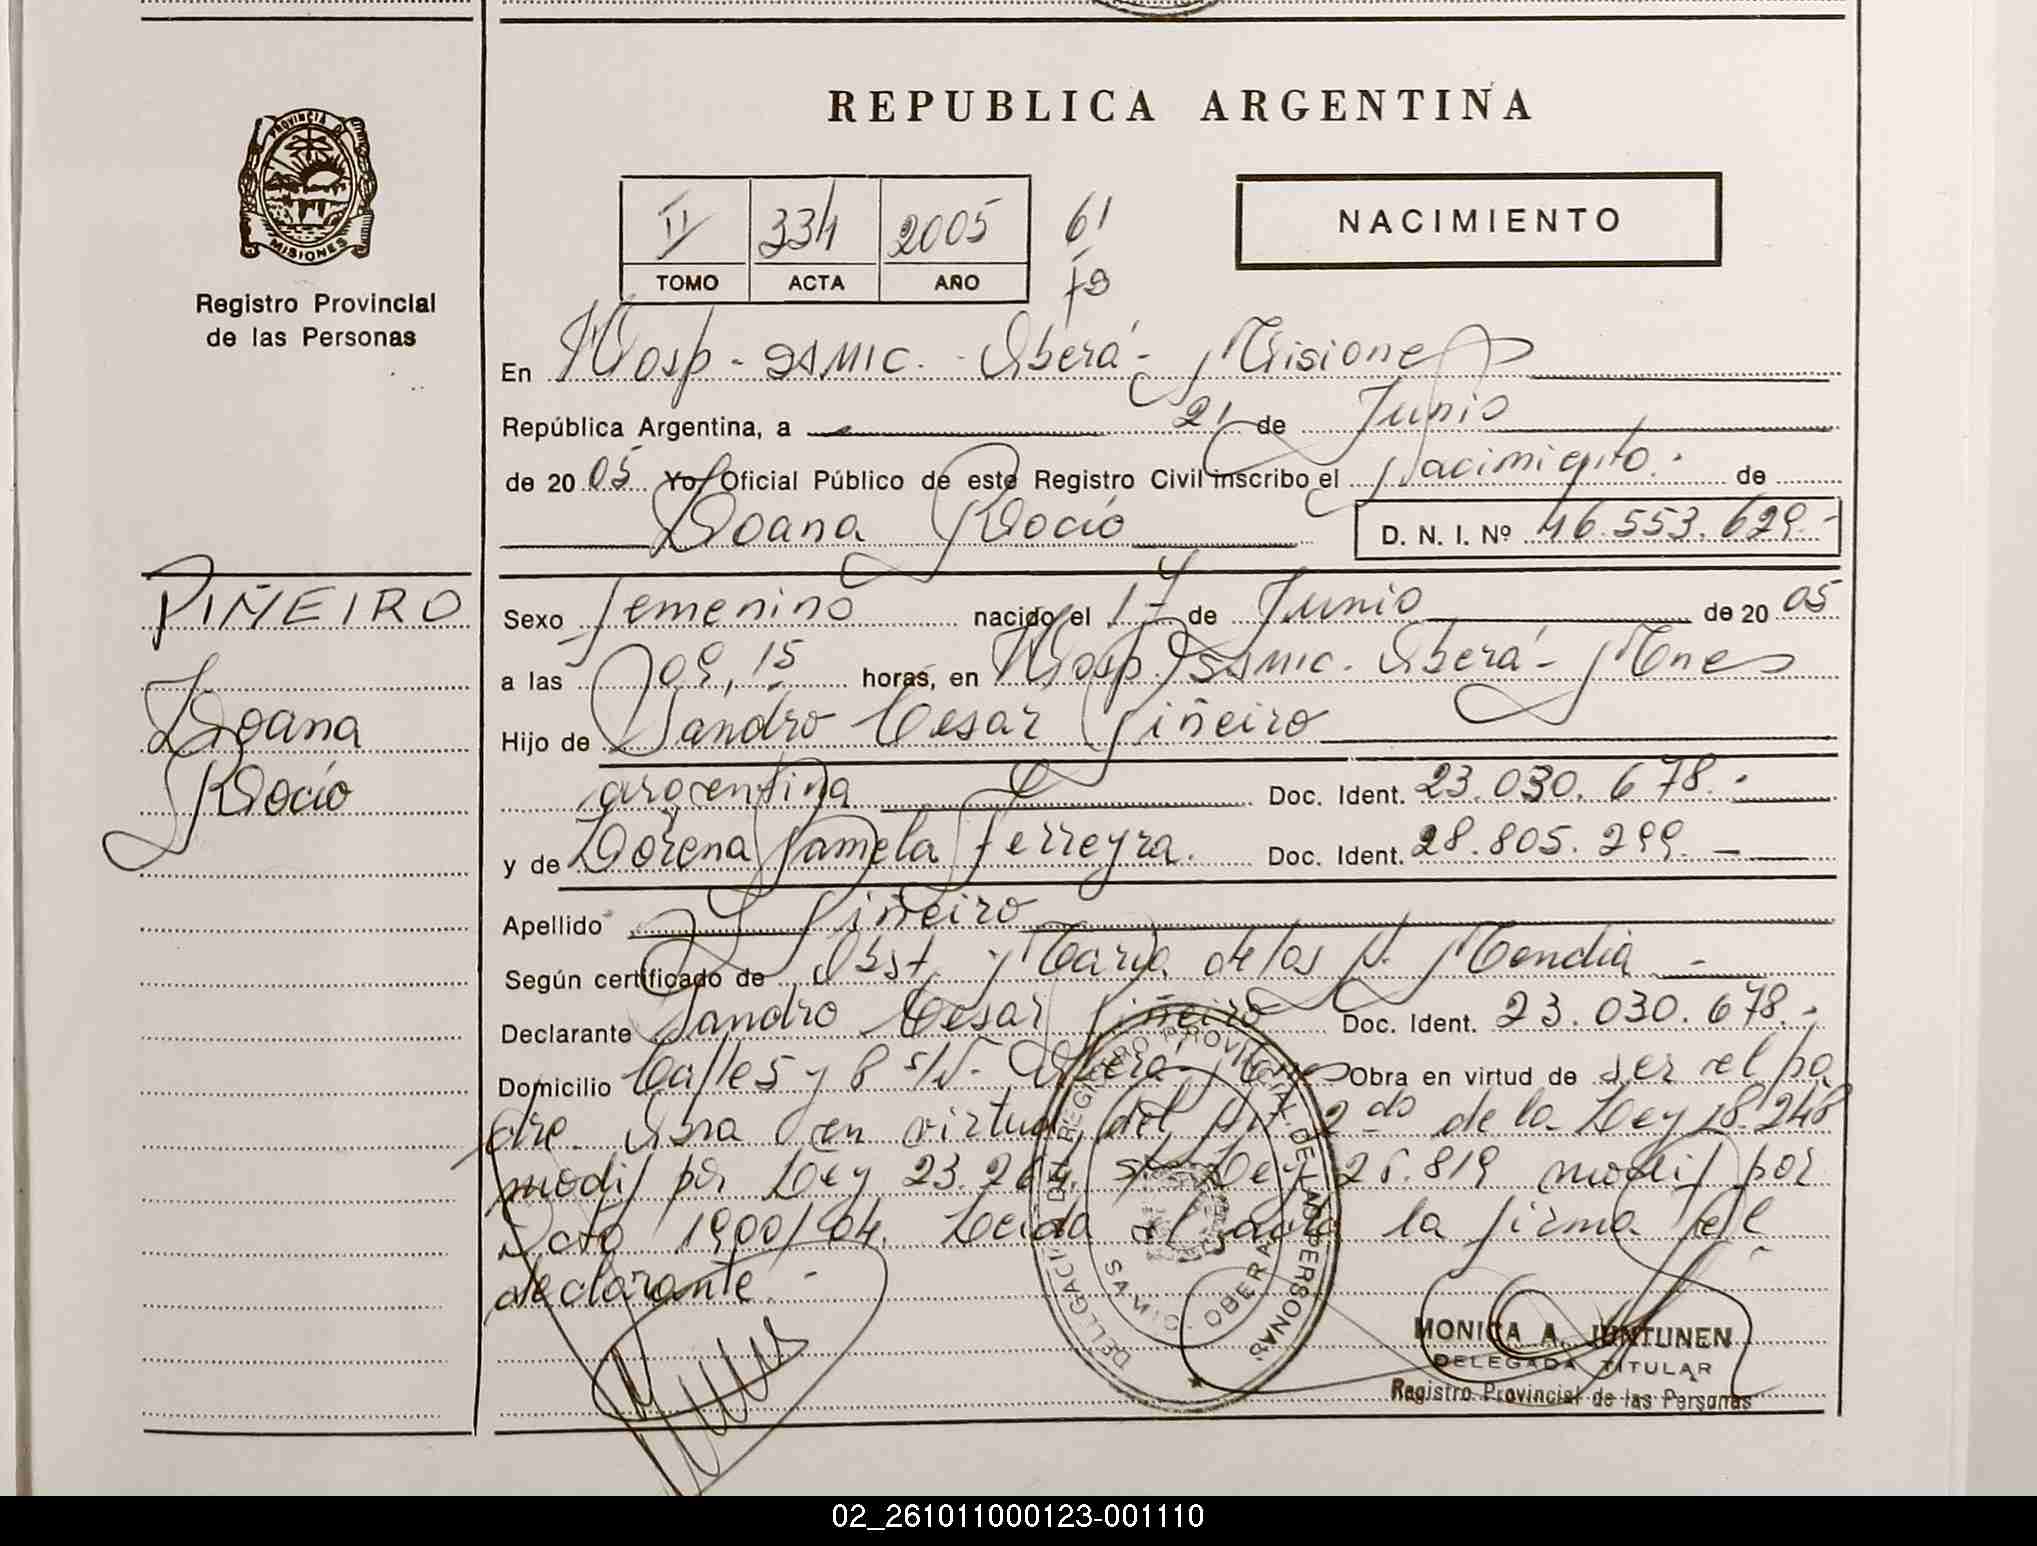 REPUBLICA ARGENTINA
PROVINCIA DE
MISIONES
Registro Provincial
de las Personas
II 334 2005 61
TOMO ACTA AÑO
NACIMIENTO
En Hosp - SAMIC. - Oberá - Misiones
República Argentina, a 21 de Junio
de 20 05 Yo, Oficial Público de este Registro Civil inscribo el Nacimiento. - de
Loana Rocío D. N. I. Nº 46.553.629.-
PIÑEIRO
Loana
Rocío
Sexo femenino nacido el 17 de Junio de 20 05
a las 09,15 horas, en Hosp. SAMIC. Oberá - Mnes
Hijo de Sandro Cesar Piñeiro
argentina Doc. Ident. 23.030.678.-
y de Lorena Pamela Ferreyra. Doc. Ident. 28.805.299. -
Apellido Piñeiro
Según certificado de Obst. Maria de los A. Mendia -
Declarante Sandro Cesar Piñeiro Doc. Ident. 23.030.678.-
Domicilio Calles 5 y 8 s/N- Oberá Mnes Obra en virtud de ser el pa
dre. Obra en virtud del Art 2do de la Ley 18.248
modif por Ley 23.264. Ley 26.819 modif por
Dcto 1900/04. Leida el acta la firma el
declarante. -
DELEGACION REGISTRO PROVINCIAL DE LAS PERSONAS
SAMIC - OBERA
MONICA A. JUNTUNEN
DELEGADA TITULAR
Registro Provincial de las Personas
02_261011000123-001110